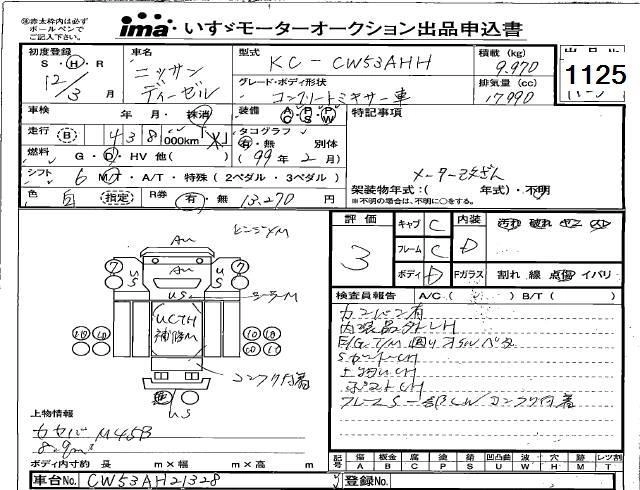 ※赤太枠内は必ず
ボールペンで
ご記入下さい。
ima いすゞモーターオークション出品申込書
初度登録
S・H・R
12/3 月
車名
ニッサン
ディーゼル
型式
KC-CW53AHH
積載 (kg)
9.970
1125
グレード・ボディ形状
コンクリートミキサー車
排気量 (cc)
17990
車検 年 月・抹消
装備 AC PS PW
特記事項
走行 B 438 000km
タコグラフ
有・無 別体
(99年2月)
燃料 G・D・HV 他( )
シフト 6 MT・A/T・特殊(2ペダル・3ペダル)
メーター改ざん
架装物年式:( 年式)・不明
※不明の場合は、不明に○をする。
色 白 指定 R券 有・無 13,270 円
評価
3
キャブ C
フレーム C
ボディ D
内装 D
汚れ 破れ ヤニ スレ
Fガラス 割れ 線 点傷 イバリ
検査員報告 A/C( ) B/T( )
カンバン有
内装品外しH
E/G.T/M 廻りオイルベタ
フレームS一部CW コンクリ付着
ヒンジM
Aw
Aw
7 7
US
US
US
シーラーM
UCTH
補修M
10 10 10 10
コンクリ付着
US
上物情報
カヤバ M45B
8.9m³
ボディ内寸約 長 m×幅 m×高 m
記号 傷 A 板金 B 腐 C 塗 P 錆 S 凹凸曲 U 波 W 穴 H 跡 M レツ割 T
車台No. CW53AH21328
登録No.